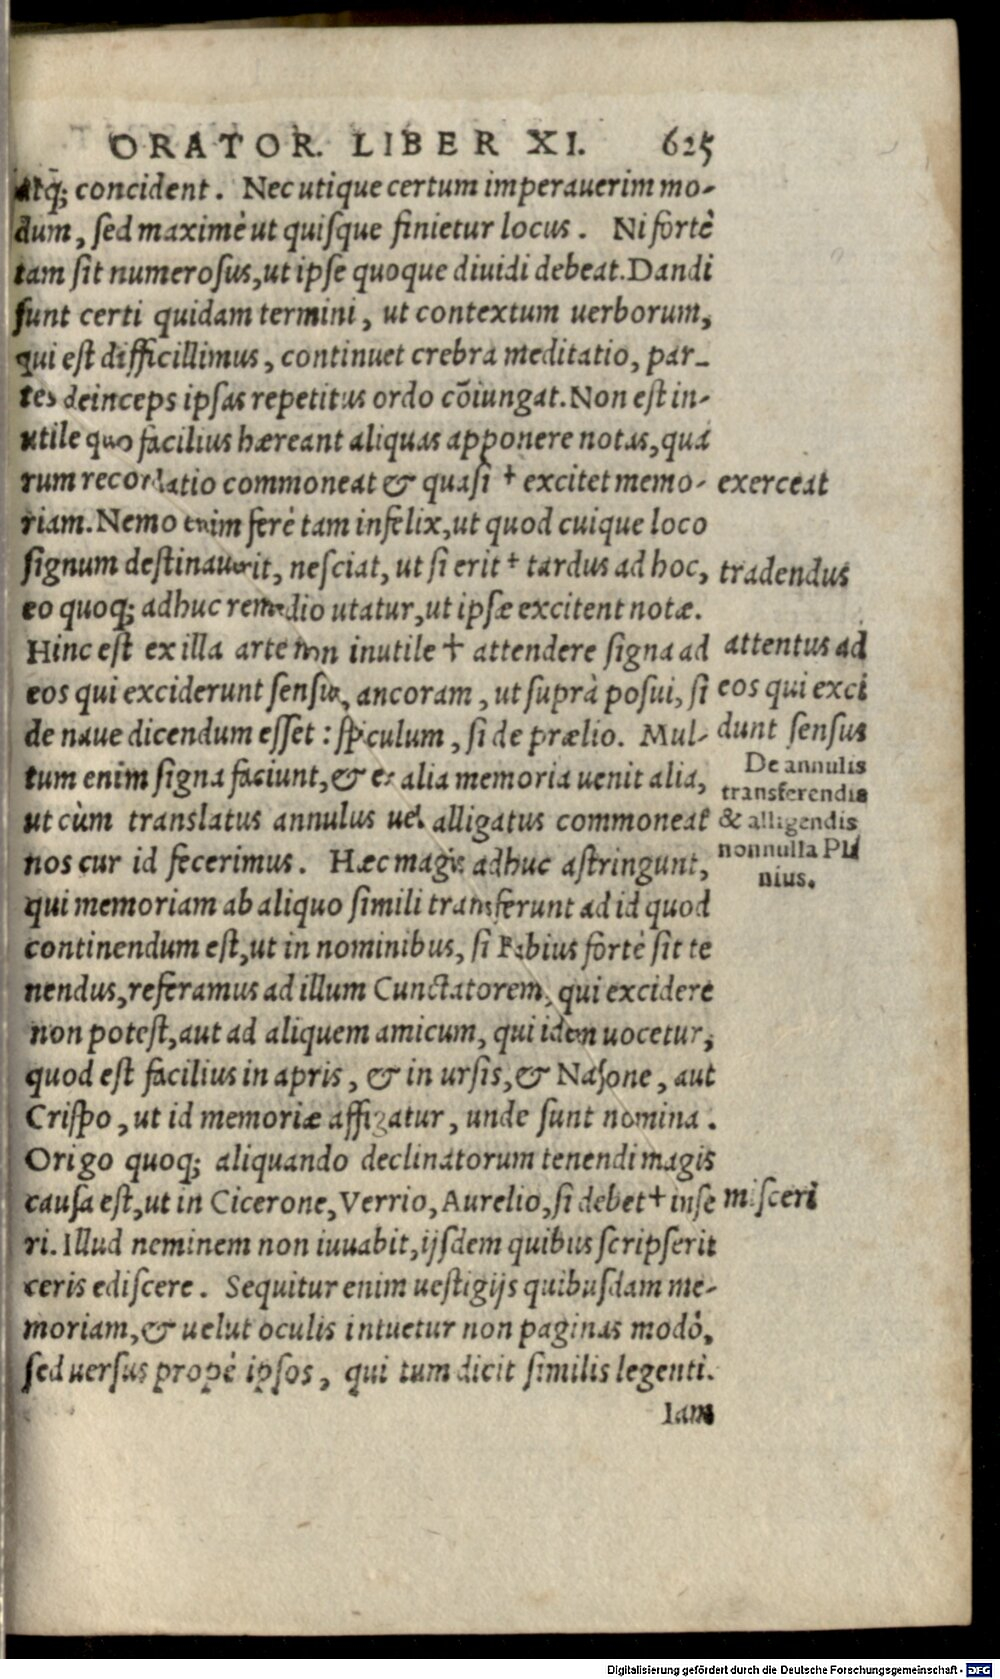 ORATOR. LIBER XI. 625
atq; concident. Nec utique certum imperauerim mo-
dum, sed maximè ut quisque finietur locus. Ni fortè
tam sit numerosus, ut ipse quoque diuidi debeat. Dandi
sunt certi quidam termini, ut contextum uerborum,
qui est difficillimus, continuet crebra meditatio, par-
tes deinceps ipsas repetitus ordo cōiungat. Non est in-
utile quo facilius hæreant aliquas apponere notas, qua
rum recordatio commoneat & quasi † excitet memo-
exerceat
riam. Nemo enim ferè tam infelix, ut quod cuique loco
signum destinauerit, nesciat, ut si erit † tardus ad hoc,
tradendus
eo quoq; adhuc remedio utatur, ut ipsæ excitent notæ.
Hinc est ex illa arte non inutile † attendere signa ad
attentus ad
eos qui exciderunt sensus, ancoram, ut suprà posui, si
eos qui exci
de naue dicendum esset: spiculum, si de prælio. Mul-
dunt sensus
tum enim signa faciunt, & ex alia memoria uenit alia,
De annulis
transferendis
ut cùm translatus annulus uel alligatus commoneat
& alligendis
nos cur id fecerimus. Hæc magis adhuc astringunt,
nonnulla Pli
nius.
qui memoriam ab aliquo simili transferunt ad id quod
continendum est, ut in nominibus, si Fabius fortè sit te
nendus, referamus ad illum Cunctatorem, qui excidere
non potest, aut ad aliquem amicum, qui idem uocetur,
quod est facilius in apris, & in ursis, & Nasone, aut
Crispo, ut id memoriæ affigatur, unde sunt nomina.
Origo quoq; aliquando declinatorum tenendi magis
causa est, ut in Cicerone, Verrio, Aurelio, si debet † inse
misceri
ri. Illud neminem non iuuabit, ijsdem quibus scripserit
ceris ediscere. Sequitur enim uestigijs quibusdam me-
moriam, & uelut oculis intuetur non paginas modò,
sed uersus propè ipsos, qui tum dicit similis legenti.
Iam
Digitalisierung gefördert durch die Deutsche Forschungsgemeinschaft - DFG